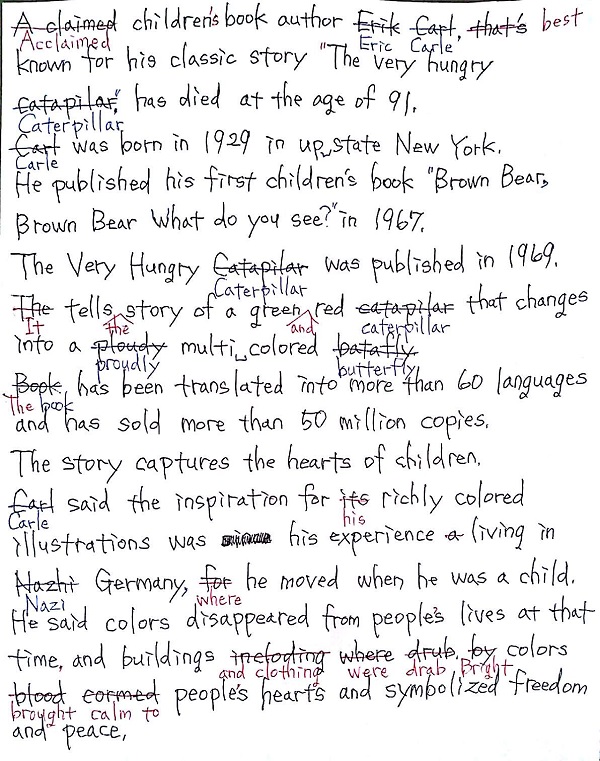 A claimed children's book author Erik Cart, that's best
Acclaimed Eric Carle
known for his classic story "The very hungry
catapilar," has died at the age of 91.
Caterpillar
Cart was born in 1929 in up state New York.
Carle
He published his first children's book "Brown Bear,
Brown Bear What do you see?" in 1967.
The Very Hungry Catapilar was published in 1969.
Caterpillar
The tells story of a green red catapilar that changes
It the and caterpillar
into a ploudy multi colored batafly.
proudly butterfly
Book has been translated into more than 60 languages
The book
and has sold more than 50 million copies.
The story captures the hearts of children.
Carl said the inspiration for its richly colored
Carle his
illustrations was his experience a living in
Nazhi Germany, for he moved when he was a child.
Nazi where
He said colors disappeared from people's lives at that
time, and buildings incloding where drub, by colors
and clothing were drab Bright
blood cormed people's heart's and symbolized freedom
brought calm to
and peace,